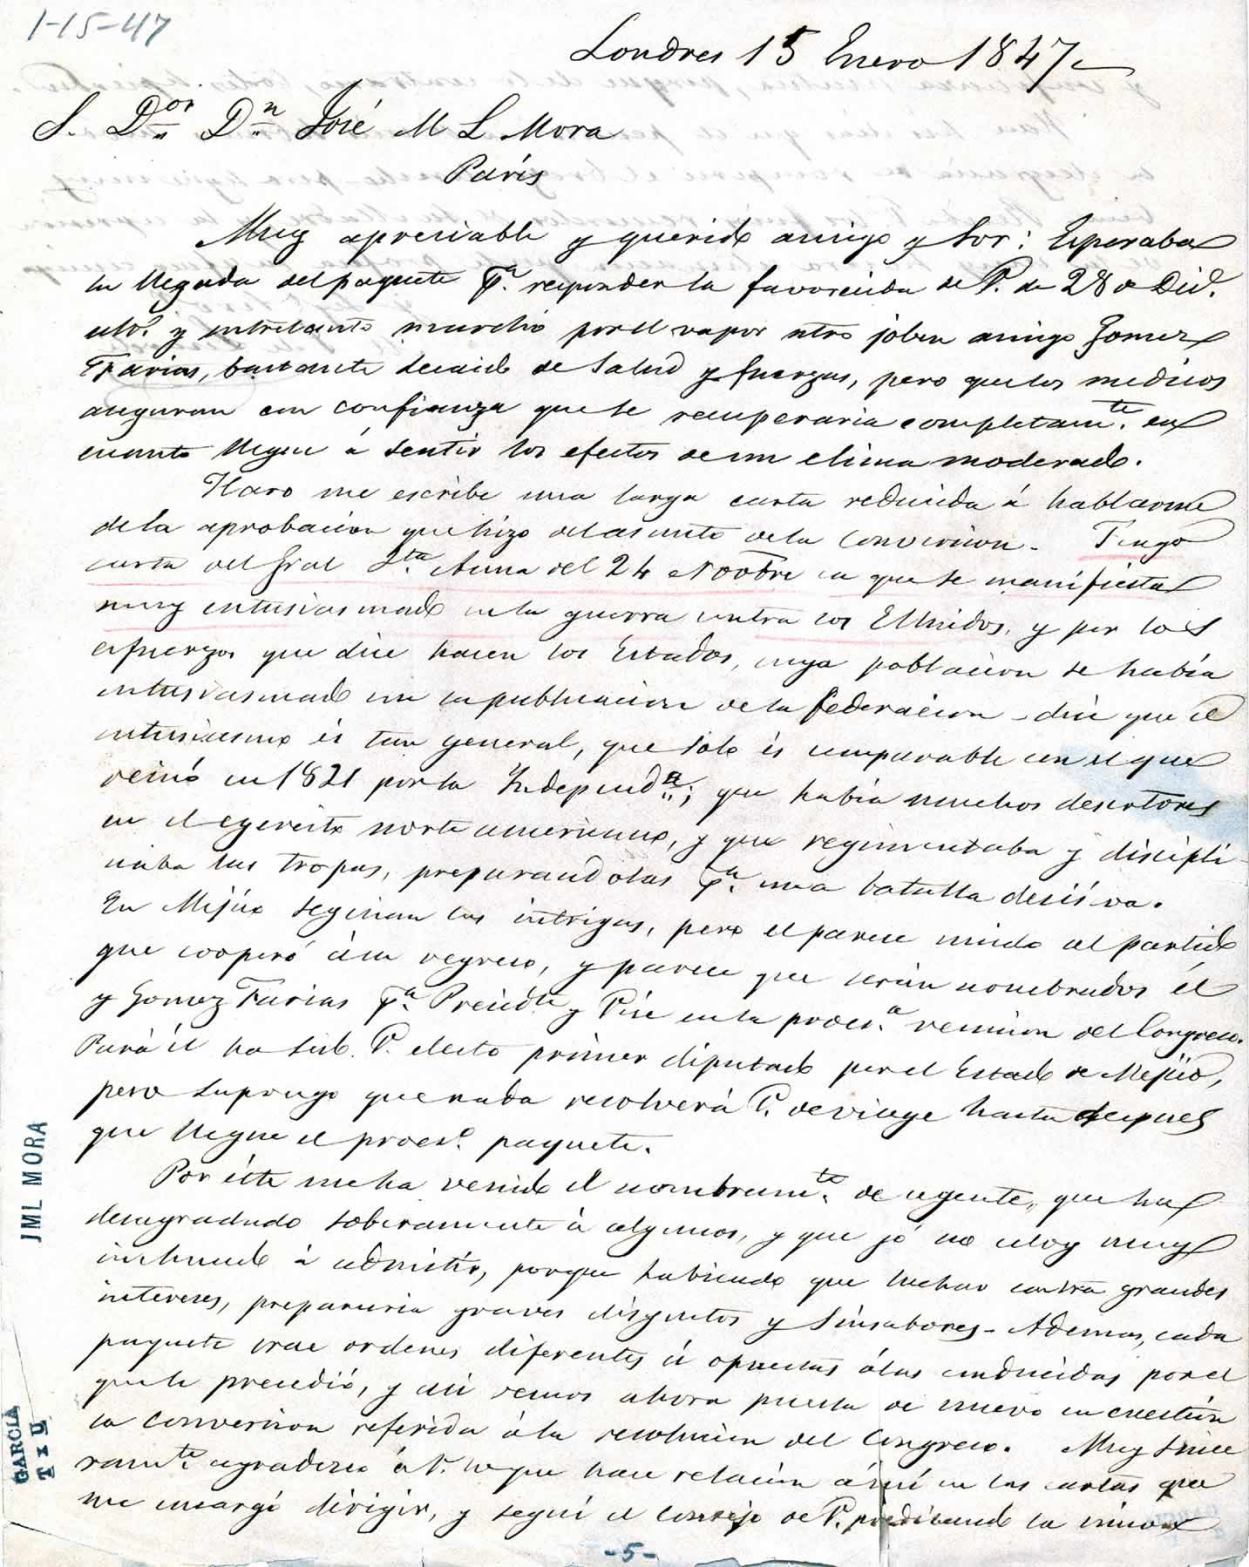 1-15-47
Londres 15 Enero 1847
S. Dor Dn José M L Mora
París
Muy apreciable y querido amigo y Sor: Esperaba
la llegada del paquete pa. responder la favorecida de V. de 28 de Dice.
ulto. y entretanto marchó por el vapor ntro joben amigo Gomez
Farias, bastante decaido de Salud y fuerzas, pero que los medicos
aseguran con confianza que se recuperaria completamte. en
cuanto llegue á sentir los efectos de un clima moderado.
Haro me escribe una larga carta reducida á hablarme
de la aprobacion que hizo del asunto de la Conversion - Tengo
carta del Gral Sta Anna del 24 Novbre en que se manifiesta
muy entusiasmado en la guerra contra los EUnidos, y por los
esfuerzos que dice hacen los Estados, cuya poblacion se había
entusiasmado con la publicacion de la federacion - dice que el
entusiasmo és tan general, que solo és comparable con el que
reinó en 1821 por la Independa; que había muchos desertores
en el egercito norte americano, y que regimentaba y discipli-
naba las tropas, preparandolas pa. una batalla decisíva.
En Mejico seguian las intrigas, pero el parece unido al partido
que cooperó á su regreso, y parece que serán nombrados él
y Gomez Farias pa. Presidte y Vice en la procsa. reunion del Congreso.
Para él ha sido V. electo primer diputado por el Estado de Mejico,
pero supongo que nada resolverá V. de viage hasta despues
que llegue el procso. paquete.
Por éste me ha venido el nombramte. de agente, que ha
desagradado soberanamente á algunos, y que yó no estoy muy
inclinado á admitir, porque habiendo que luchar contra grandes
intereses, prepararia graves disgustos y sinsabores - Ademas, cada
paquete trae ordenes diferentes ú opuestas á las conducidas por el
que le precedió, y asi vemos ahora puesta de nuevo en cuestion
la conversion referida á la resolucion del Congreso. Muy since
ramte. agradezco á V. lo que hace relacion á mí en las cartas que
me encargó dirigir, y seguí el consejo de V. pidiendo la
-5-
JML MORA
GARCIA